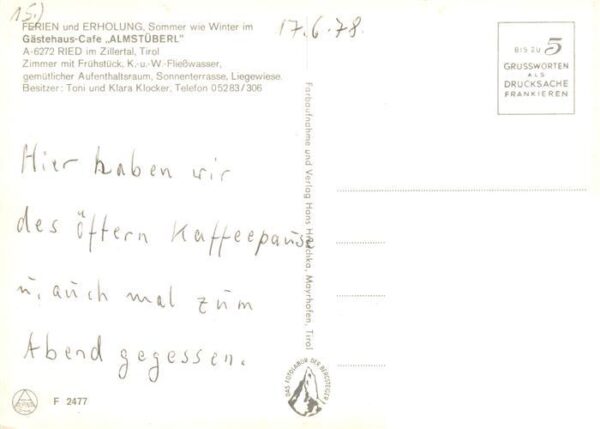 15.)
FERIEN und ERHOLUNG, Sommer wie Winter im
Gästehaus-Cafe „ALMSTÜBERL"
A-6272 RIED im Zillertal, Tirol
Zimmer mit Frühstück, K.-u.-W.-Fließwasser,
gemütlicher Aufenthaltsraum, Sonnenterrasse, Liegewiese.
Besitzer: Toni und Klara Klocker, Telefon 05283/306
17.6.78.
BIS ZU 5
GRUSSWORTEN
ALS
DRUCKSACHE
FRANKIEREN
Hier haben wir
des öftern Kaffeepause
u. auch mal zum
Abend gegessen.
Farbaufnahme und Verlag Hans Hruschka, Mayrhofen, Tirol
DAS FOTOLABOR DER BERGSTEIGER
F 2477